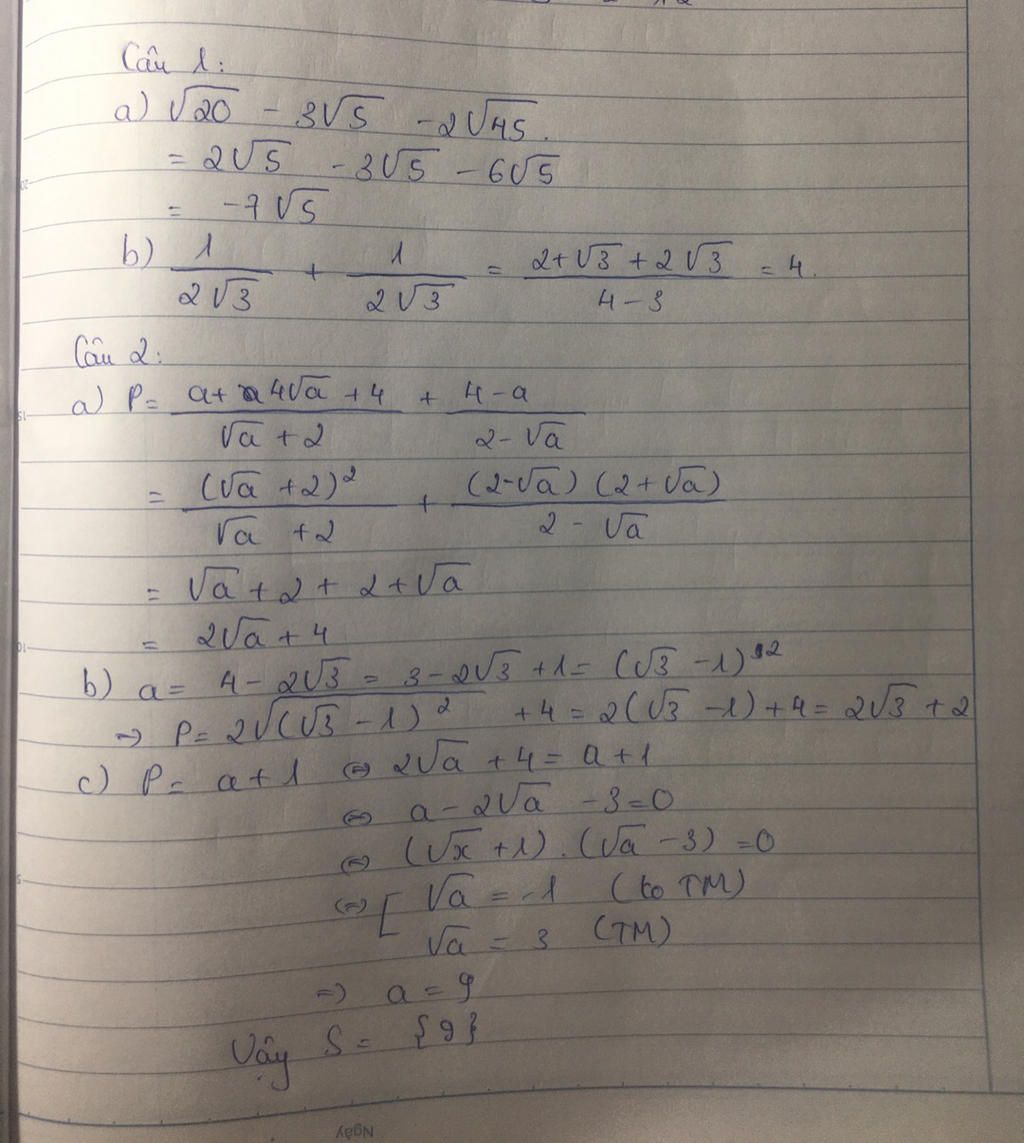 Câu 1:
a) √20 - 3√5 - 2√45.
= 2√5 - 3√5 - 6√5
= -7√5
b) 1/(2√3) + 1/(2√3) = (2+√3 + 2√3)/(4-3) = 4.
Câu 2:
a) P = (a + 4√a + 4)/(√a + 2) + (4-a)/(2-√a)
= (√a + 2)²/(√a + 2) + (2-√a)(2+√a)/(2-√a)
= √a + 2 + 2 + √a
= 2√a + 4
b) a = 4 - 2√3 = 3 - 2√3 + 1 = (√3 - 1)²
→ P = 2√((√3 - 1)²) + 4 = 2(√3 - 1) + 4 = 2√3 + 2
c) P = a + 1 ⇔ 2√a + 4 = a + 1
⇔ a - 2√a - 3 = 0
⇔ (√x + 1).(√a - 3) = 0
⇔ [ √a = -1 (ko TM)
√a = 3 (TM)
=> a = 9
Vậy S = {9}
Ngày